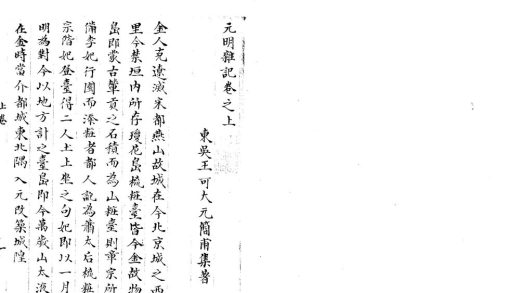 元明雜記卷之上
東吳王可大元簡甫集著
金人克遼滅宋都燕山故城在今北京城之西
里今禁垣內所存瓊花島梳粧臺皆今金故物
島即蒙古輦貢之石積而為山粧臺則章宗所
備李妃行園而添粧者都人訛為蕭太后梳粧
宗階妃登臺得二人土上坐之句妃即以一月
明為對今以地方計之臺島即今萬歲山太液
在金時當介都城東北隅入元改築城隍
上卷